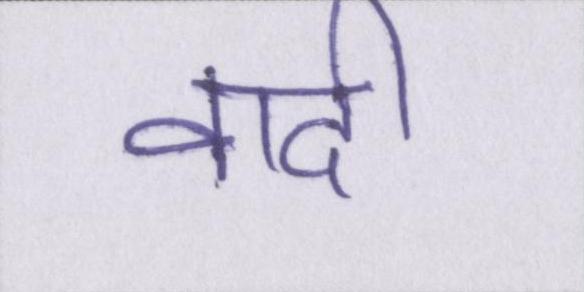 वादी